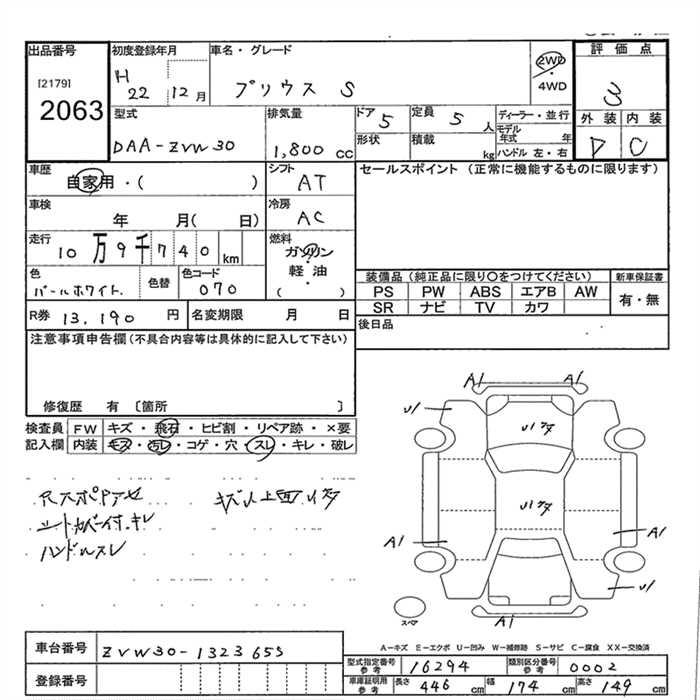 出品番号
[2179]
2063
初度登録年月
H
22 12月
車名・グレード
プリウス S
2WD
・
4WD
評価点
3
外装 内装
D C
型式
DAA-ZVW30
排気量
1,800 cc
ドア 5
形状
定員 5 人
積載 kg
ディーラー・並行
モデル年式 年
ハンドル 左・右
車歴
自家用・( )
シフト
AT
セールスポイント (正常に機能するものに限ります)
車検
年 月( 日)
冷房
AC
走行
10万9千740km
燃料
ガソリン
軽油
・
( )
色
パールホワイト
色替
色コード
070
装備品 (純正品に限り○をつけてください)
PS PW ABS エアB AW
SR ナビ TV カワ
新車保証書
有・無
R券 13,190円
名変期限 月 日
後日品
注意事項申告欄(不具合内容等は具体的に記入して下さい)
修復歴 有 〔箇所 〕
検査員記入欄
FW キズ・飛石・ヒビ割・リペア跡・×要
内装 キズ・汚レ・コゲ・穴・スレ・キレ・破レ
シートカバー付.キレ
ハンドルスレ
A1 A1
U1
A1
A1
U1
A1
スペア
A−キズ E−エクボ U−凹み W−補修跡 S−サビ C−腐食 XX−交換済
車台番号 ZVW30-1323655
登録番号
型式指定番号 参考 16294
類別区分番号 参考 0002
車庫証明用 参考 長さ 446 cm 幅 174 cm 高さ 149 cm